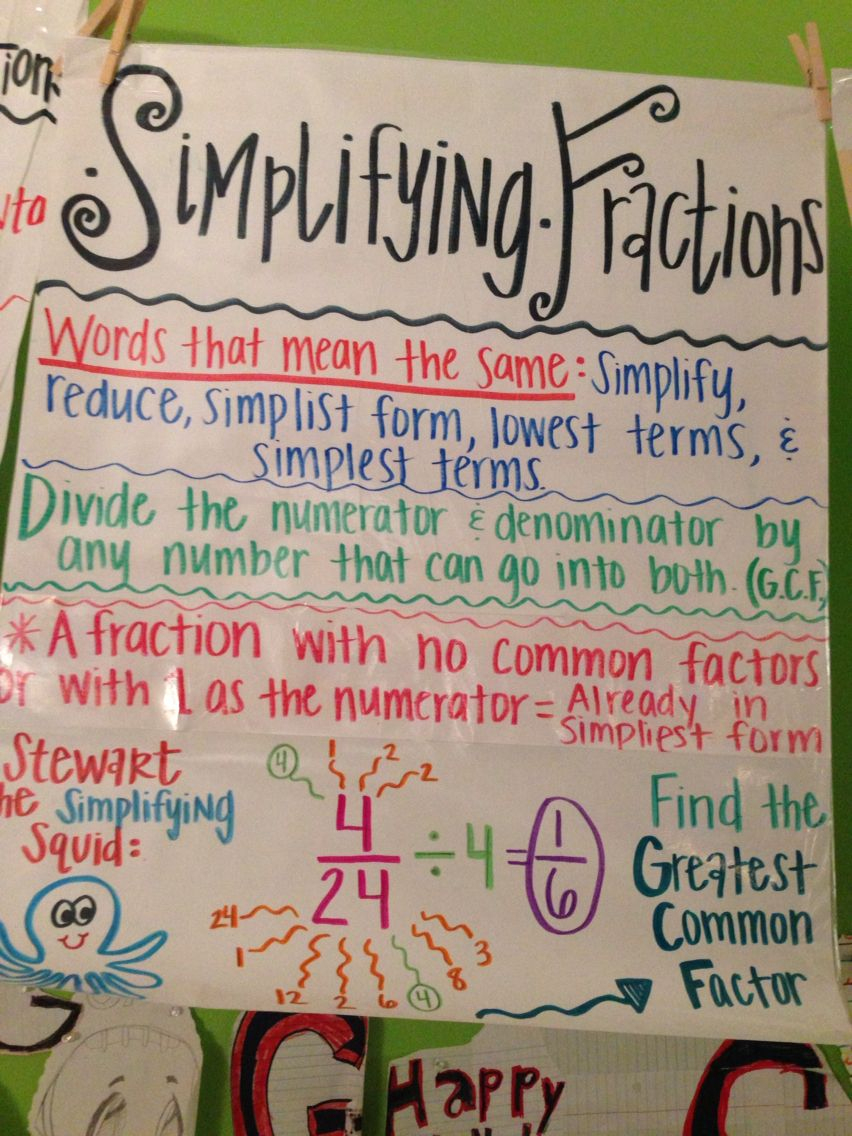 Simplifying Fractions
Words that mean the same: Simplify,
reduce, simplist form, lowest terms, &
simplest terms.
Divide the numerator & denominator by
any number that can go into both. (G.C.F.)
* A fraction with no common factors
or with 1 as the numerator = Already in
Simpliest form
Stewart
he Simplifying
Squid:
4 1 2 2
4/24 ÷ 4 = 1/6
24 1 12 2 6 4 8 3
Find the
Greatest
Common
Factor
Happy